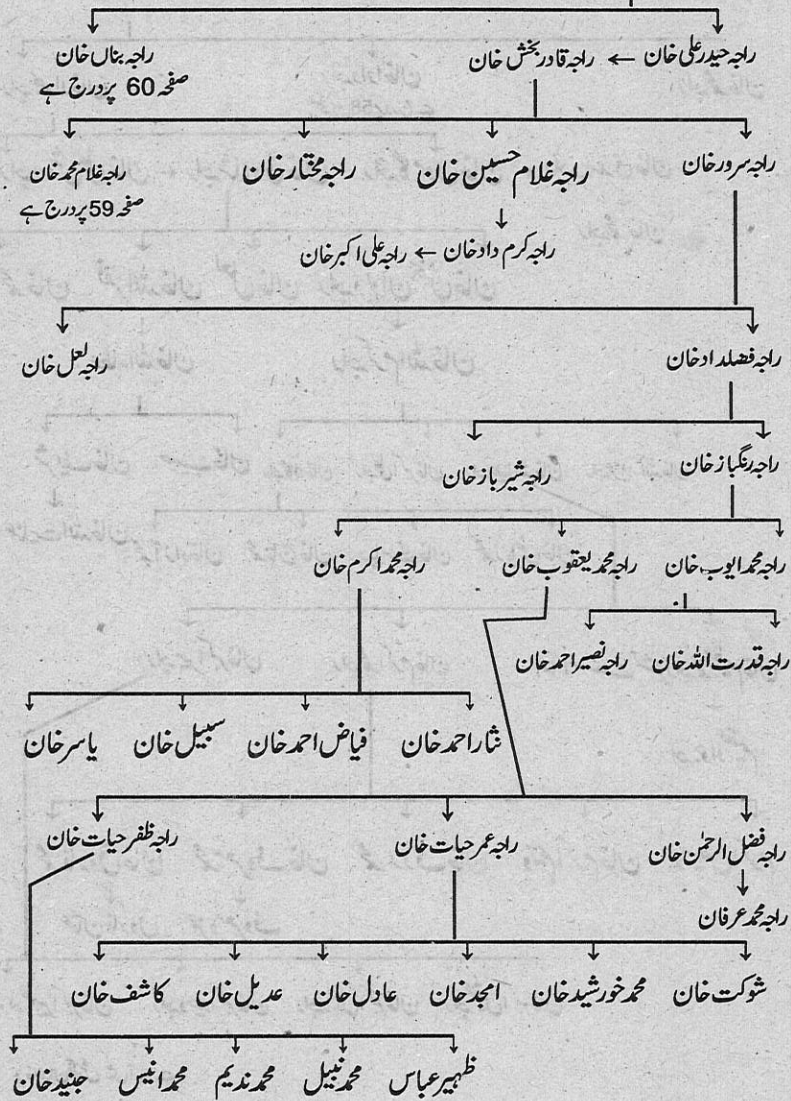 راجہ حیدر علی خان ← راجہ قادر بخش خان راجہ بناں خان
صفحہ 60 پر درج ہے
راجہ سرور خان راجہ غلام حسین خان راجہ مختار خان راجہ غلام محمد خان
صفحہ 59 پر درج ہے
راجہ کرم داد خان ← راجہ علی اکبر خان
راجہ فضلداد خان راجہ لعل خان
راجہ رنگباز خان راجہ شیر باز خان
راجہ محمد ایوب خان راجہ محمد یعقوب خان راجہ محمد اکرم خان
راجہ قدرت اللہ خان راجہ نصیر احمد خان
نثار احمد خان فیاض احمد خان سبیل خان یاسر خان
راجہ فضل الرحمٰن خان راجہ عمر حیات خان راجہ ظفر حیات خان
راجہ محمد عرفان
شوکت خان محمد خورشید خان امجد خان عادل خان عدیل خان کاشف خان
ظہیر عباس محمد نبیل محمد ندیم محمد انیس جنید خان